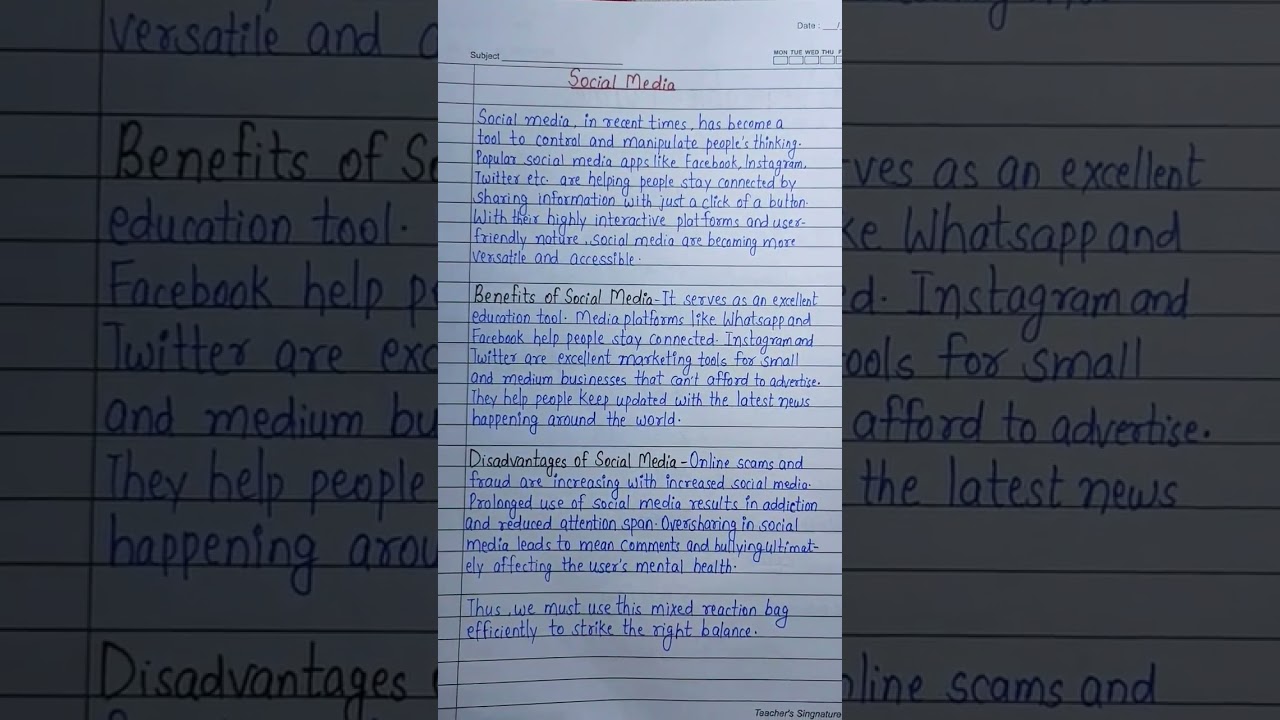 Date : __/
Subject
MON TUE WED THU F
Social Media
Social media, in recent times, has become a
tool to control and manipulate people's thinking.
Popular social media apps like Facebook, Instagram,
Twitter etc. are helping people stay connected by
sharing information with just a click of a button.
With their highly interactive platforms and user-
friendly nature, social media are becoming more
versatile and accessible.
Benefits of Social Media - It serves as an excellent
education tool. Media platforms like Whatsapp and
Facebook help people stay connected. Instagram and
Twitter are excellent marketing tools for small
and medium businesses that can't afford to advertise.
They help people keep updated with the latest news
happening around the world.
Disadvantages of Social Media - Online scams and
fraud are increasing with increased social media.
Prolonged use of social media results in addiction
and reduced attention span. Oversharing in social
media leads to mean comments and bullying ultimat-
ely affecting the user's mental health.
Thus, we must use this mixed reaction bag
efficiently to strike the right balance.
Teacher's Singnature